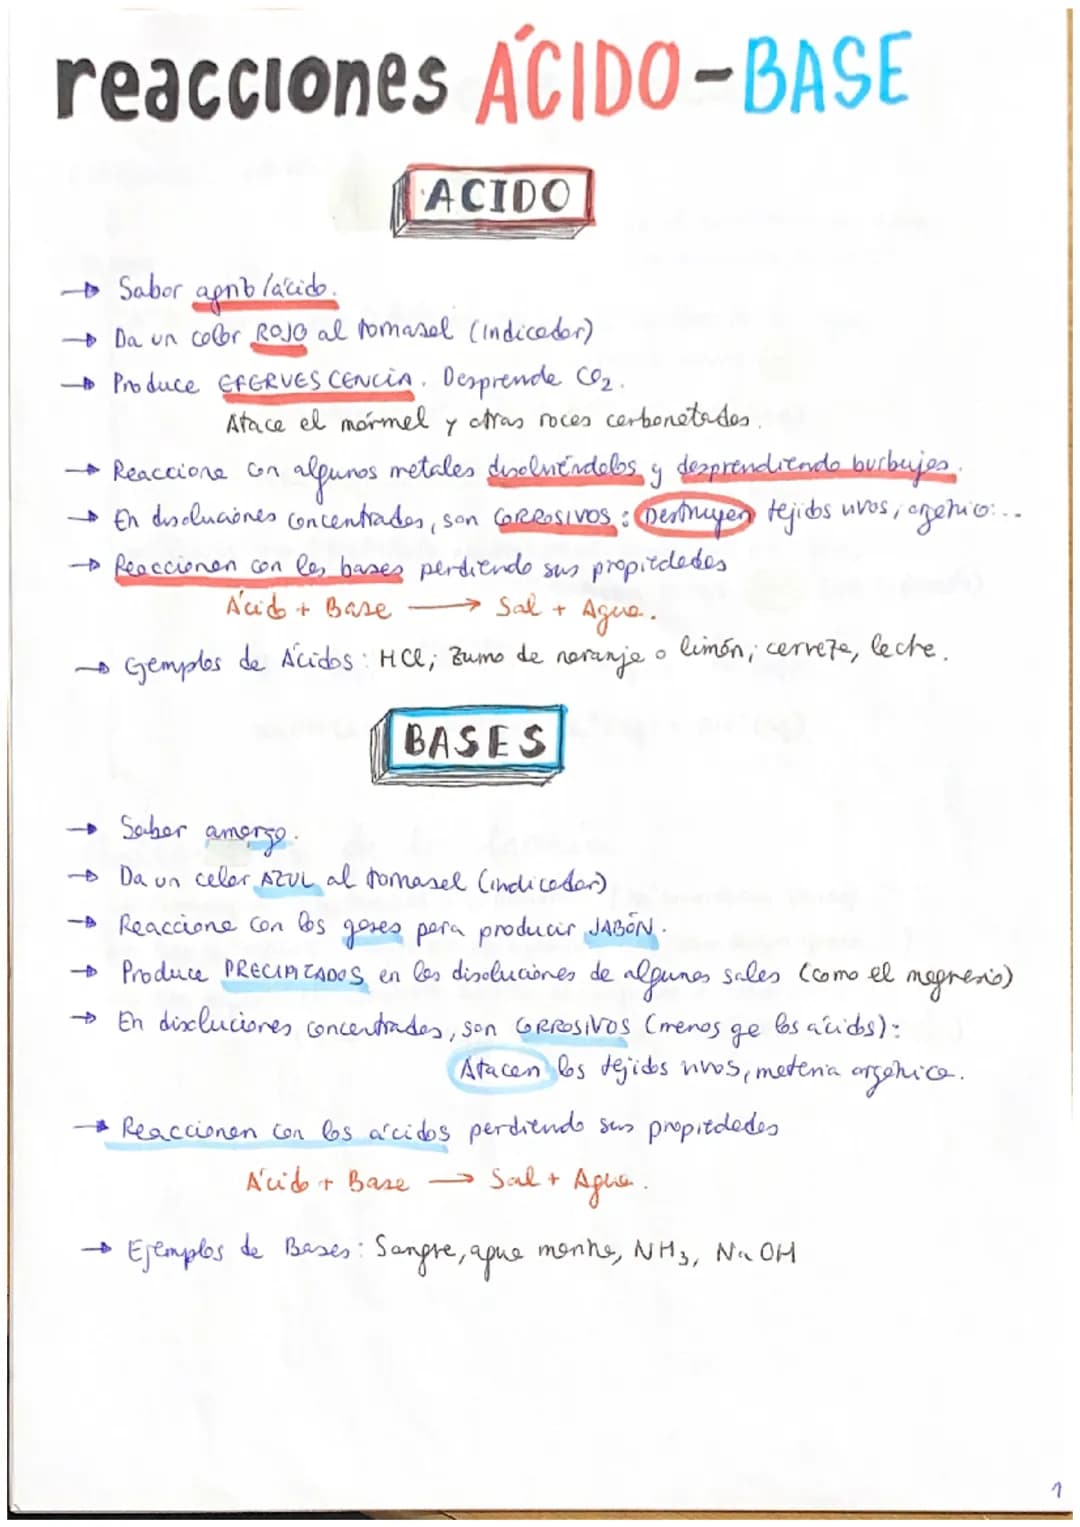 reacciones ÁCIDO-BASE
ACIDO
→ Sabor agrio/ácido.
→ Da un color ROJO al tornasol (Indicador)
→ Produce EFERVESCENCIA. Desprende CO₂.
Ataca el mármol y otras rocas carbonatadas.
→ Reacciona con algunos metales disolviéndolos y desprendiendo burbujas.
→ En disoluciones concentradas, son CORROSIVOS: Destruyen tejidos vivos, orgánico...
→ Reaccionan con las bases perdiendo sus propiedades
Ácido + Base → Sal + Agua.
→ Ejemplos de Ácidos: HCl; Zumo de naranja o limón; cerveza, leche.
BASES
→ Sabor amargo.
→ Da un color AZUL al tornasol (indicador)
→ Reacciona con las grasas para producir JABÓN.
→ Produce PRECIPITADOS en las disoluciones de algunas sales (como el magnesio)
→ En disoluciones concentradas, son CORROSIVOS (menos qe los ácidos):
Atacan los tejidos vivos, materia orgánica.
→ Reaccionan con los ácidos perdiendo sus propiedades
Ácido + Base → Sal + Agua.
→ Ejemplos de Bases: Sangre, agua marina, NH₃, NaOH
1